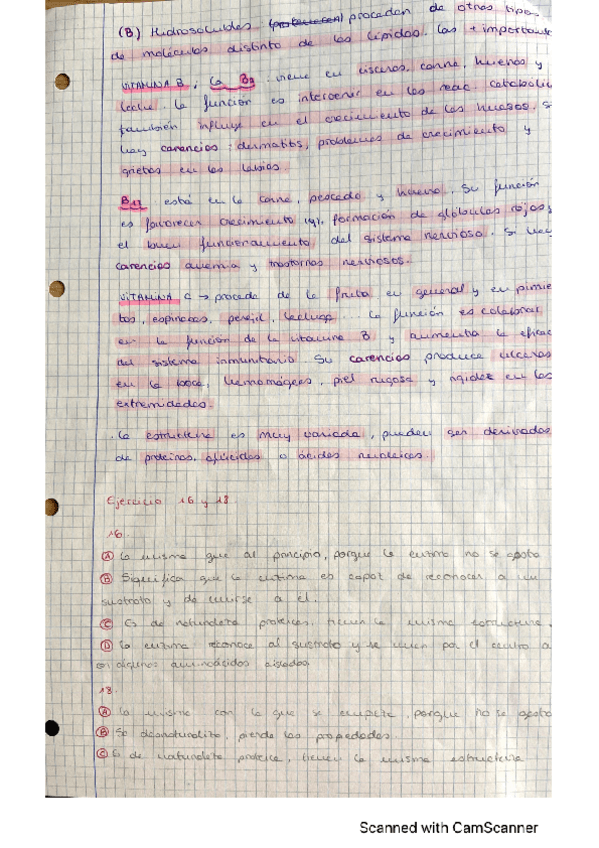 (B) Hidrosolubles procaden de otros tipos
de moléculas distinto de los lípidos. las + importante
VITAMINA B : la B3 : viene en vísceras, carne, huevos y
leche. la función es intervenir en las reac. catabolic
también influye en el crecimiento de los huesos. si
hay carencias : dermatitis, problemas de crecimiento y
grietas en los labios.
está en la carne, pescado y huevo. Su función
es favorecer crecimiento, formación de glóbulos rojos,
el buen funcionamiento del sistema nervioso. Si hay
carencias anemia y trastornos nerviosos.
VITAMINA C → procede de la fruta en general y en pimie
tos, espinacas, perejil, lechuga... la función es colaborar
en la función de la vitamina B y aumenta la eficac
del sistema inmunitario. Su carencias produce úlceras
en la boca, hemorragias, piel rugosa y rigidez en las
extremidades.
. la estructura es muy variada, pueden ser derivados
de proteinas, glúcidos o ácidos nucleicos.
Ejercicio 16 y 18
16.
A la misma que al principio, porque la enzima no se agota
B Significa que la enzima es capaz de reconocer a un
sustrato y de unirse a él.
C Es de naturaleza proteica, tienen la misma estructura.
D la enzima reconoce al sustrato y se unen por el centro a
algunos aminoácidos aislados
18.
A la misma con la que se empieza, porque no se agota
B Se desnaturaliza, pierde las propiedades.
C Es de naturaleza proteica, tienen la misma estructura
Scanned with CamScanner